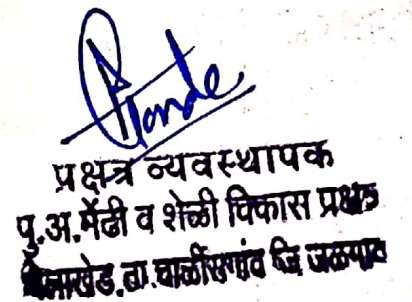 प्रक्षेत्र व्यवस्थापक
पु.अ.मेंढी व शेळी विकास प्रक्षेत्र
ता.चाळीसगांव जि जळगाव